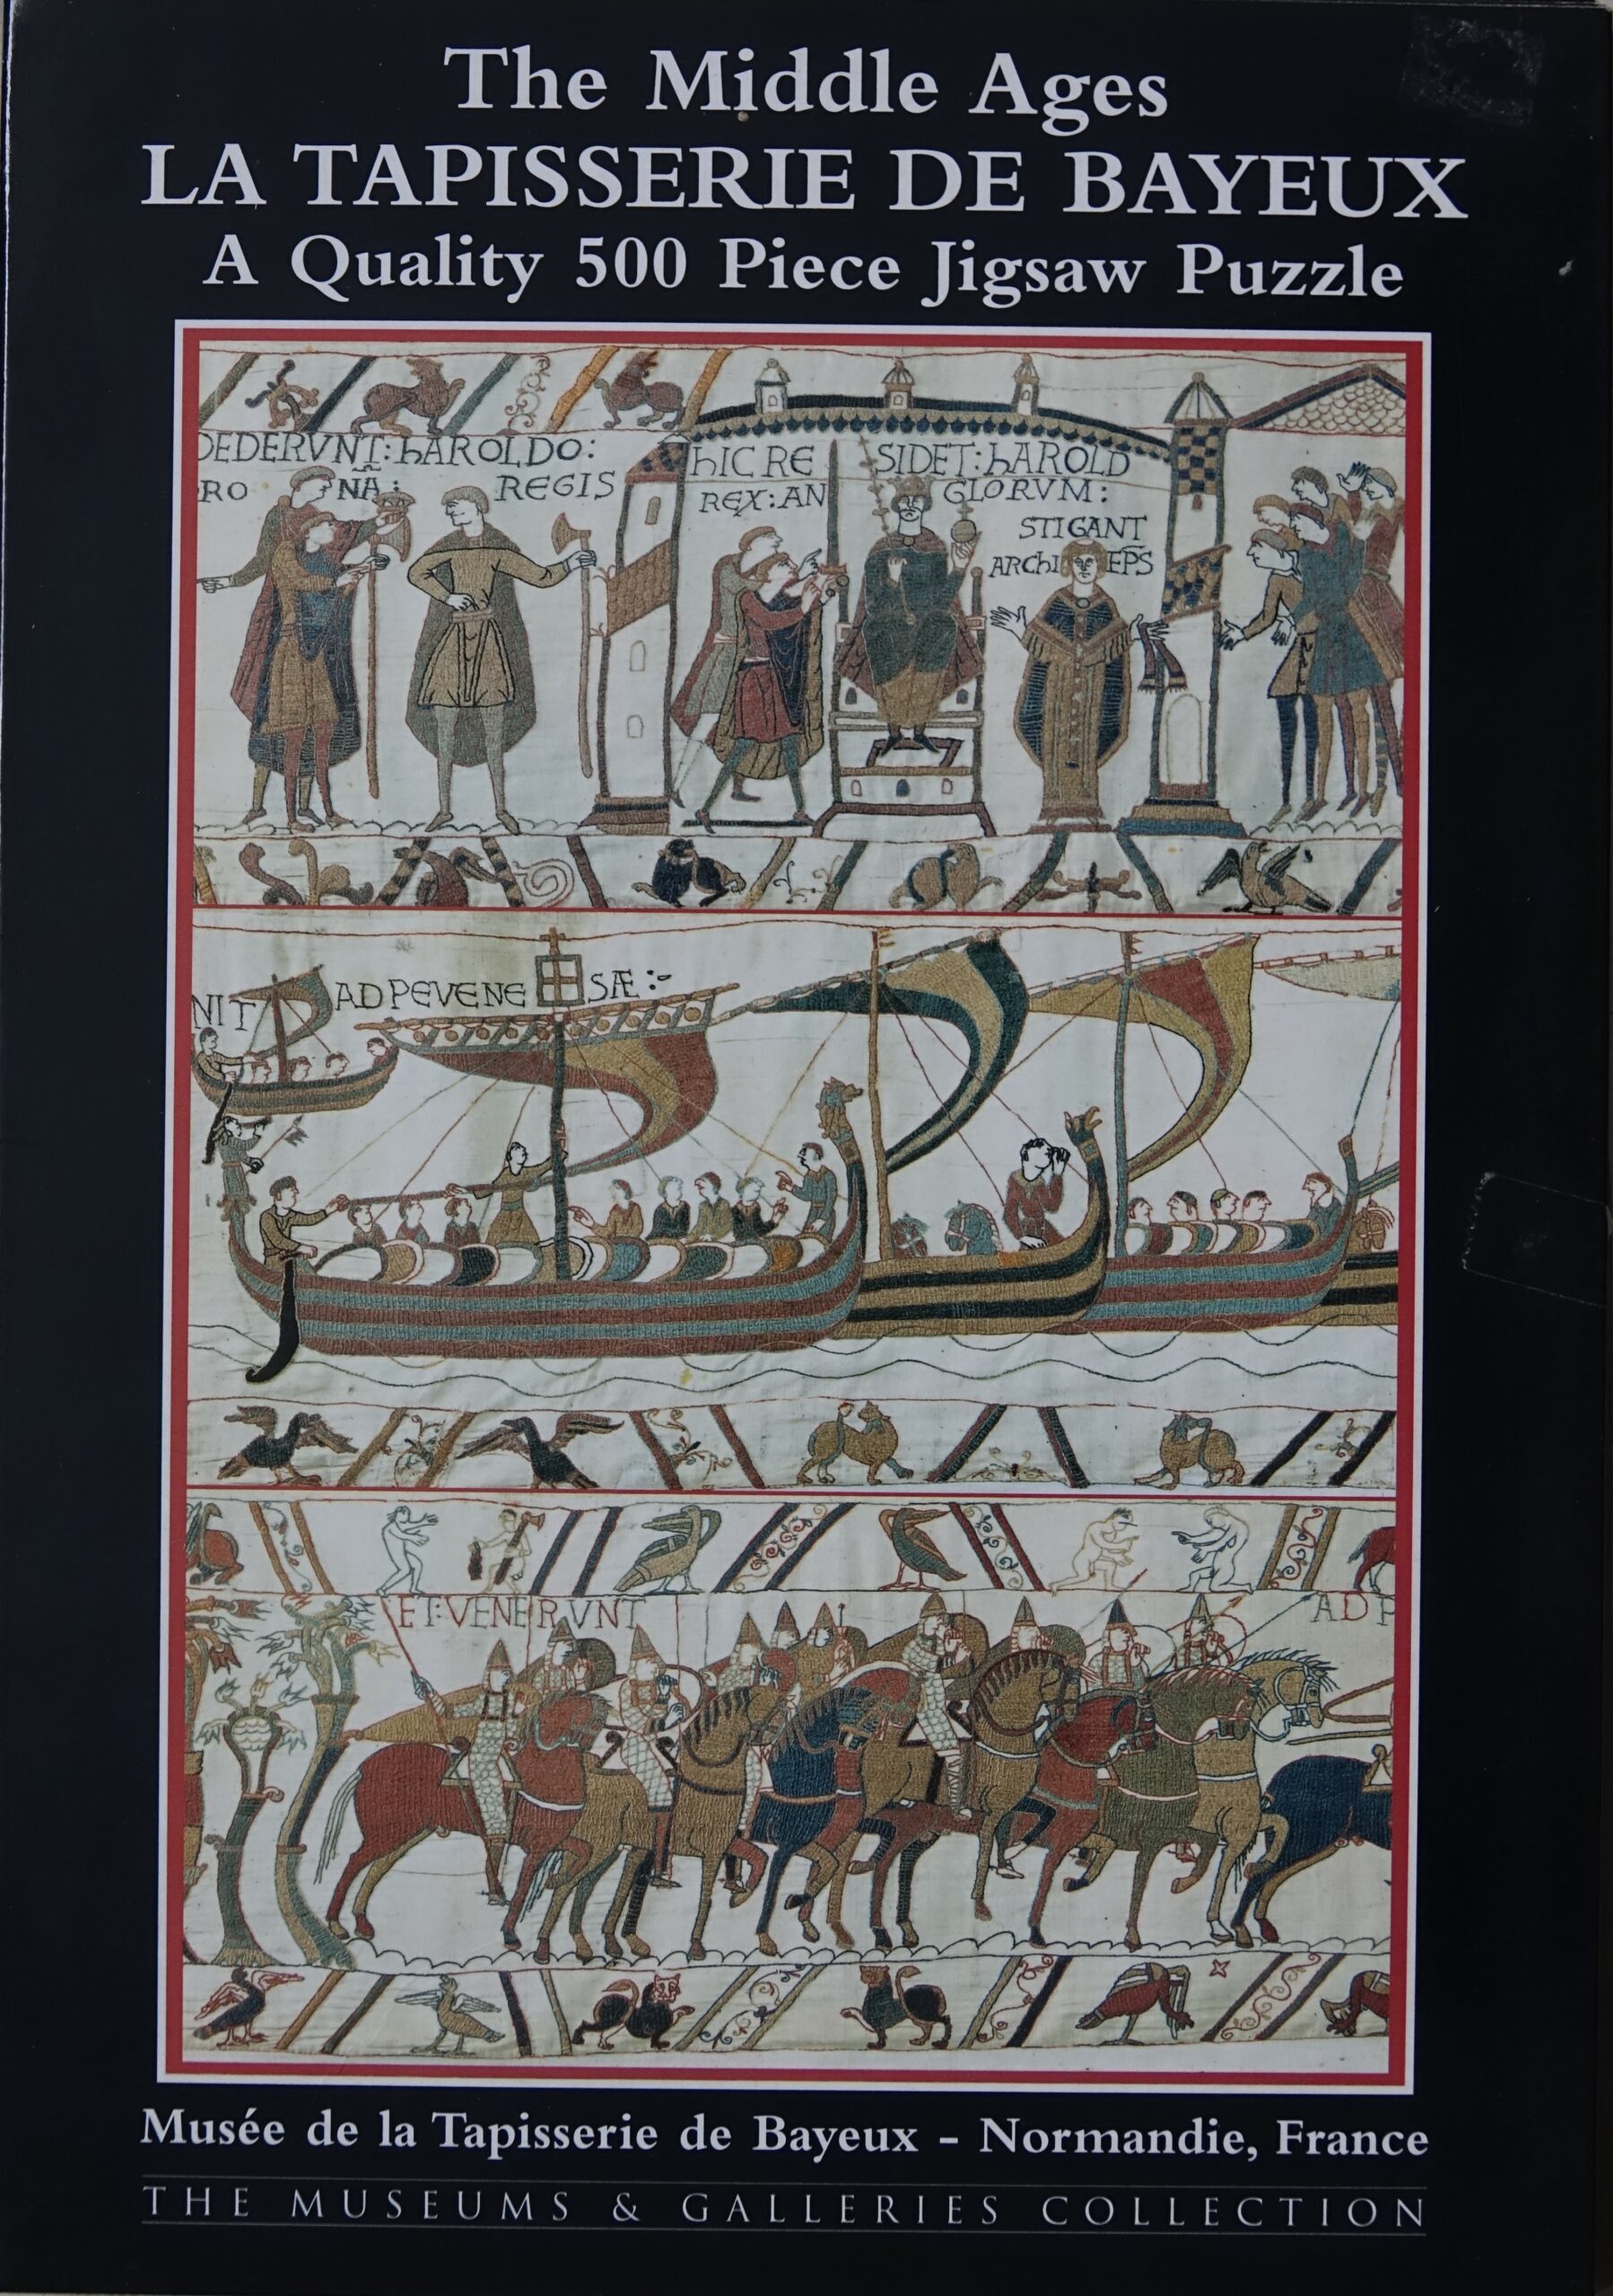 The Middle Ages
LA TAPISSERIE DE BAYEUX
A Quality 500 Piece Jigsaw Puzzle
DEDERVNT: hAROLDO:
RO NA: REGIS
hIC RE SIDET: hAROLD
REX: AN GLORVM:
STIGANT
ARChI EPS
NIT AD PEVENE SÆ:-
ET: VENERVNT AD P
Musée de la Tapisserie de Bayeux – Normandie, France
THE MUSEUMS & GALLERIES COLLECTION